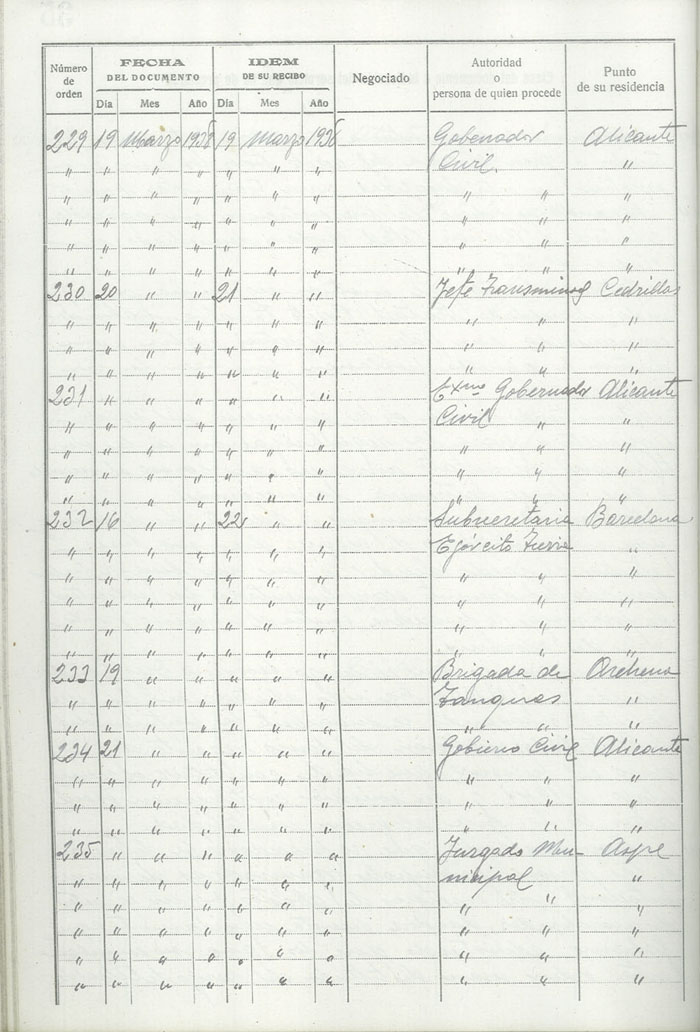 Número de orden | FECHA DEL DOCUMENTO | IDEM DE SU RECIBO | Negociado | Autoridad o persona de quien procede | Punto de su residencia
Día | Mes | Año | Día | Mes | Año
229 19 Marzo 1938 19 Marzo 1938 Gobenador Alicante
" " " " " " " Civil. "
" " " " " " " " " "
" " " " " " " " " "
" " " " " " " " " "
" " " " " " " " " "
230 20 " " 21 " " Jefe Cedrillas
" " " " " " " " " "
" " " " " " " " " "
" " " " " " " " " "
231 " " " " " " Exmo Gobernador Alicante
" " " " " " " Civil " "
" " " " " " " " " "
" " " " " " " " " "
" " " " " " " " " "
232 16 " " 22 " " Subsecretaria Barcelona
" " " " " " " Ejército "
" " " " " " " " " "
" " " " " " " " " "
" " " " " " " " " "
" " " " " " " " " "
233 19 " " " " " Brigada de Archena
" " " " " " " Tanques "
" " " " " " " " " "
234 21 " " " " " Gobierno Civil Alicante
" " " " " " " " " "
" " " " " " " " " "
" " " " " " " " " "
235 " " " " " " Juzgado Mu- Aspe
" " " " " " " nicipal "
" " " " " " " " " "
" " " " " " " " " "
" " " " " " " " " "
" " " " " " " " " "